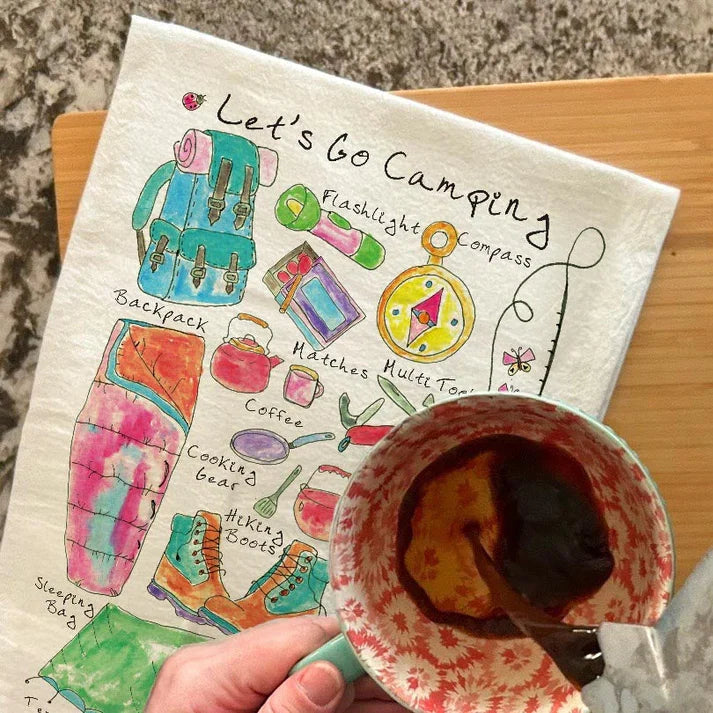 Let's Go Camping
Flashlight
Compass
Backpack
Matches
Coffee
Cooking
Gear
Hiking
Boots
Sleeping
Bag